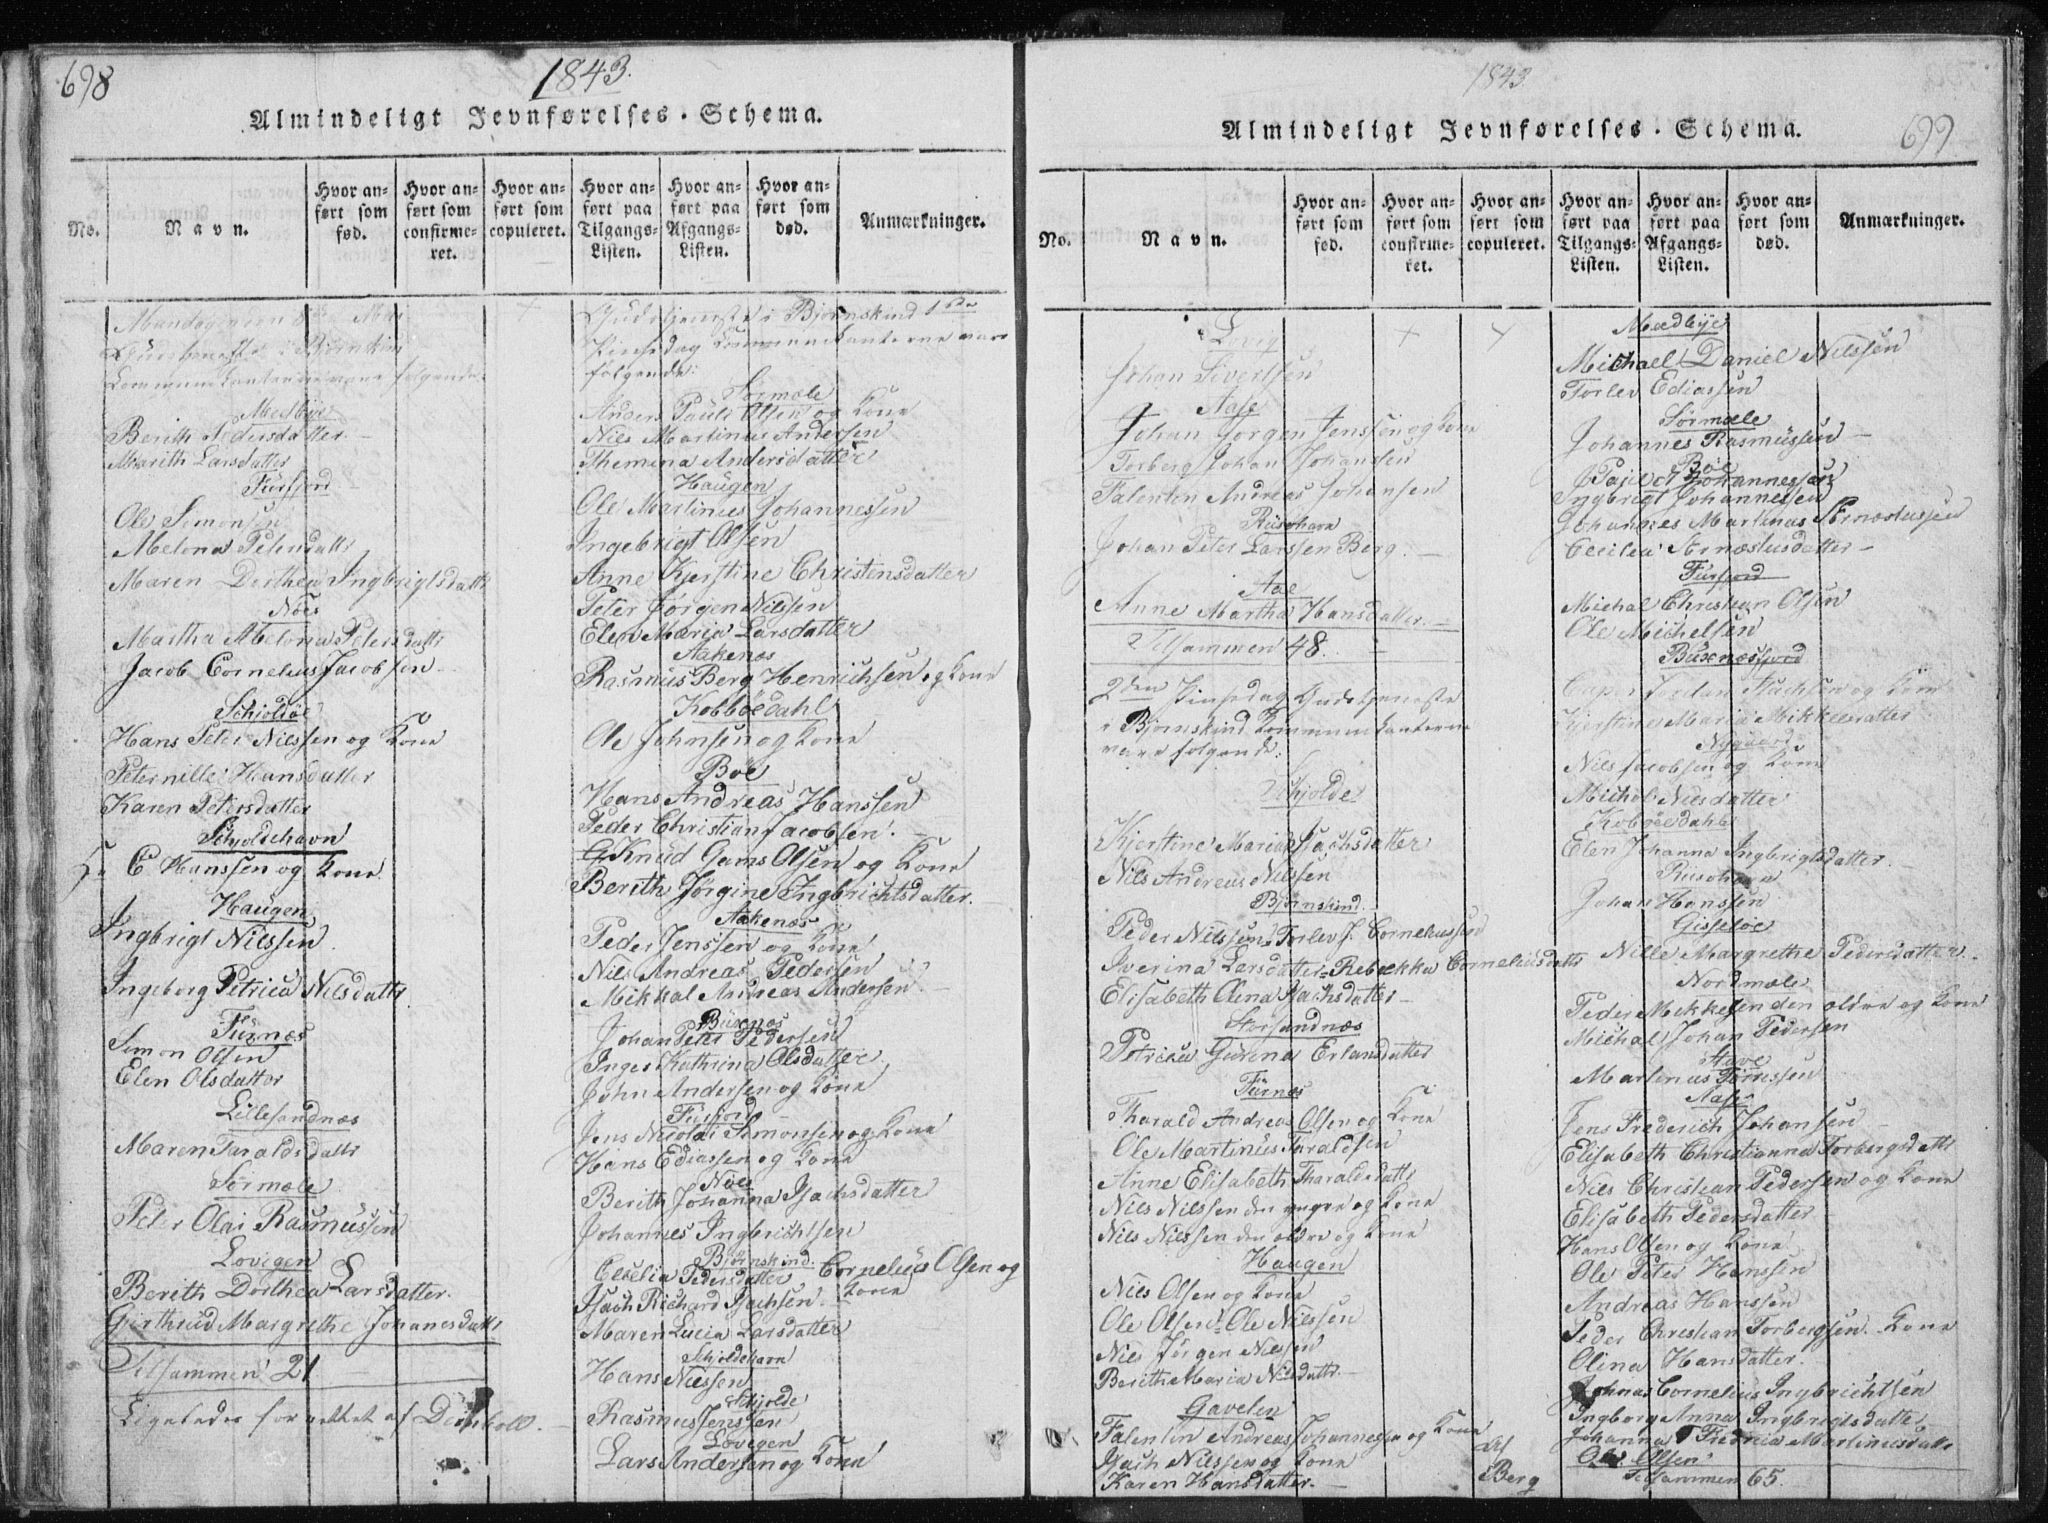 698
1843.
Almindeligt Jevnførelses-Schema.
No.
Navn.
Hvor anført som fød.
Hvor anført som confirmeret.
Hvor anført som copuleret.
Hvor anført paa Tilgangs-Listen.
Hvor anført paa Afgangs-Listen.
Hvor anført som død.
Anmærkninger.
Mandag den 8de Mai
Gudstjeneste i Bjørnskin
Communikanterne vare følgende:
Medbye
Berith Pedersdatter
Marith Larsdatter
Furfjord
Ole Simonsen
Melena Petersdattr
Maren Dorthea Ingbrigtsdattr
Nøes
Martha Melona Petersdattr
Jacob Cornelius Jacobsen
Schjoldøe
Hans Peter Nilssen og Kone
Peternille Hansdatter
Karen Petersdatter
Schjoldehavn
Hr C Hanssen og Kone
Haugen
Ingbrigt Nilssen
Ingeborg Petrica Nilsdattr
Furnæs
Simon Olsen
Elen Olsdatter
Lillesandnæs
Maren Taraldsdattr
Sørmæle
Peter Olai Rasmussen
Lovigen
Berith Dorthea Larsdatter.
Gjertheud Margrethe Johanesdattr
Tilsammen 21
Ligeledes forrettet af Deinboll.
Gudstjeneste i Bjørnskind 1ste
Pinsedag Communikanterne vare
følgende:
Sørmæle
Anders Pauls Olsen og Kone
Nils Martinus Andersen
Themina Andersdatter
Haugen
Ole Martinus Johannessen
Ingebrigt Olsen
Anne Kjerstine Christensdatter
Peter Jørgen Nilssen
Elen Maria Larsdatter
Aakenæs
Rasmus Berg Henrichsen og Kone
Kobbøedahl
Ole Johnsen og Kone
Böe
Hans Andreas Hanssen
Peder Christian Jacobsen.
G Knud Gams Olsen og Kone
Berith Jørgine Ingbrichtsdatter.
Aakenæs
Peder Jenssen og Kone
Nils Andreas Pedersen
Mikkal Andreas Andersen
Buxnæs
Johan Peter Pedersen
Inger Kathrina Olsdatter
John Andersen og Kone
Fusfjord
Jens Nicolai Simonsen og Kone
Hans Ediassen og Kone
Nöes
Berith Johanna Isachsdatter
Johannes Ingbrichtsen
Bjørnskind
Cecelia Pedersdatter Cornelius Olsen og Kone
Isach Richard Isachsen
Maren Lucia Larsdatter
Schjoldehavn
Hans Nilssen
Schjolde
Rasmus Jenssen
Lovigen
Lars Andersen og Kone
1843
Almindeligt Jevnførelses-Schema.
699
No.
Navn.
Hvor anført som fød.
Hvor anført som confirmeret.
Hvor anført som copuleret.
Hvor anført paa Tilgangs-Listen.
Hvor anført paa Afgangs-Listen.
Hvor anført som død.
Anmærkninger.
Lovig
Johan Sivertsen
Aase
Johan Jørgen Jenssen og Kone
Torberg Johan Johanssen
Falentin Andreas Johansen
Risøhavn
Johan Peter Larssen Berg.
Aae
Anne Martha Hansdatter.
Tilsammen 48.
2den Pinsedag Gudstjeneste
i Bjørnskind Kommunikanterne
vare følgende:
Schjolde
Kjerstine Maria Isachsdatter
Nils Andreas Nilssen
Bjørnskind
Peder Nilssen Torlev J. Corneliussen
Iverina Larsdatter Rebækka Corneliusdattr
Elisabeth Elena Isachsdatter
Storsandnæs
Petricia Gurena Erlandsdatter
Furnæs
Tharald Andreas Olsen og Kone
Ole Martinus Taraldsen
Anne Elisabeth Tharaldsdattr
Nils Nilssen den yngre og Kone
Nils Nilssen den ældre og Kone
Haugen
Nils Olsen og Kone
Ole Olsen Ole Nilssen
Nils Jørgen Nilssen
Berith Maria Nilsdattr.
Gavelen
Falentin Andreas Johannessen og Kone
Isach Nilssen og Kone
Karen Hansdatter.
af
Berg
Medbye
Michael Daniel Nilssen
Torlev Ediassen
Sørmæle
Johannes Rasmussen
Böe
Ingbrigt Johannessen
Johannes Martinus Arnæstussen
Cecilea Arnæstusdatter
Furfjord
Michal Christian Olsen
Ole Michelsen
Buxnæsfjord
Isachsen og Kone
Kjerstine Maria Mikkelsdatter
Nygaard
Nils Jacobsen og Kone
Nilsdatter
Kobøedahl
Elen Johanna Ingbrigtsdatter.
Risøhavn
Johan Hanssen
Gisseløe
Nille Margrethe Pedersdatter
Nordmæle
Peder Mekkelsen den ældre og Kone
Michal Johan Pedersen
Stave
Martinus Tønnessen
Aase
Jens Frederich Johansen
Elisabeth Christianna Torbergsdattr
Nils Christian Pedersen og Kone
Elisabeth Pedersdatter
Hans Olsen og Kone
Ole Peter Hanssen
Andreas Hanssen
Peder Christian Torbergsen. Kone
Olina Hansdatter.
Johnas Cornelius Ingbrichtsen
Ingborg Anna Ingbrigtsdatter
Johanna Fredrica Martinusdattr
Ole Olsen
Tilsammen 65.